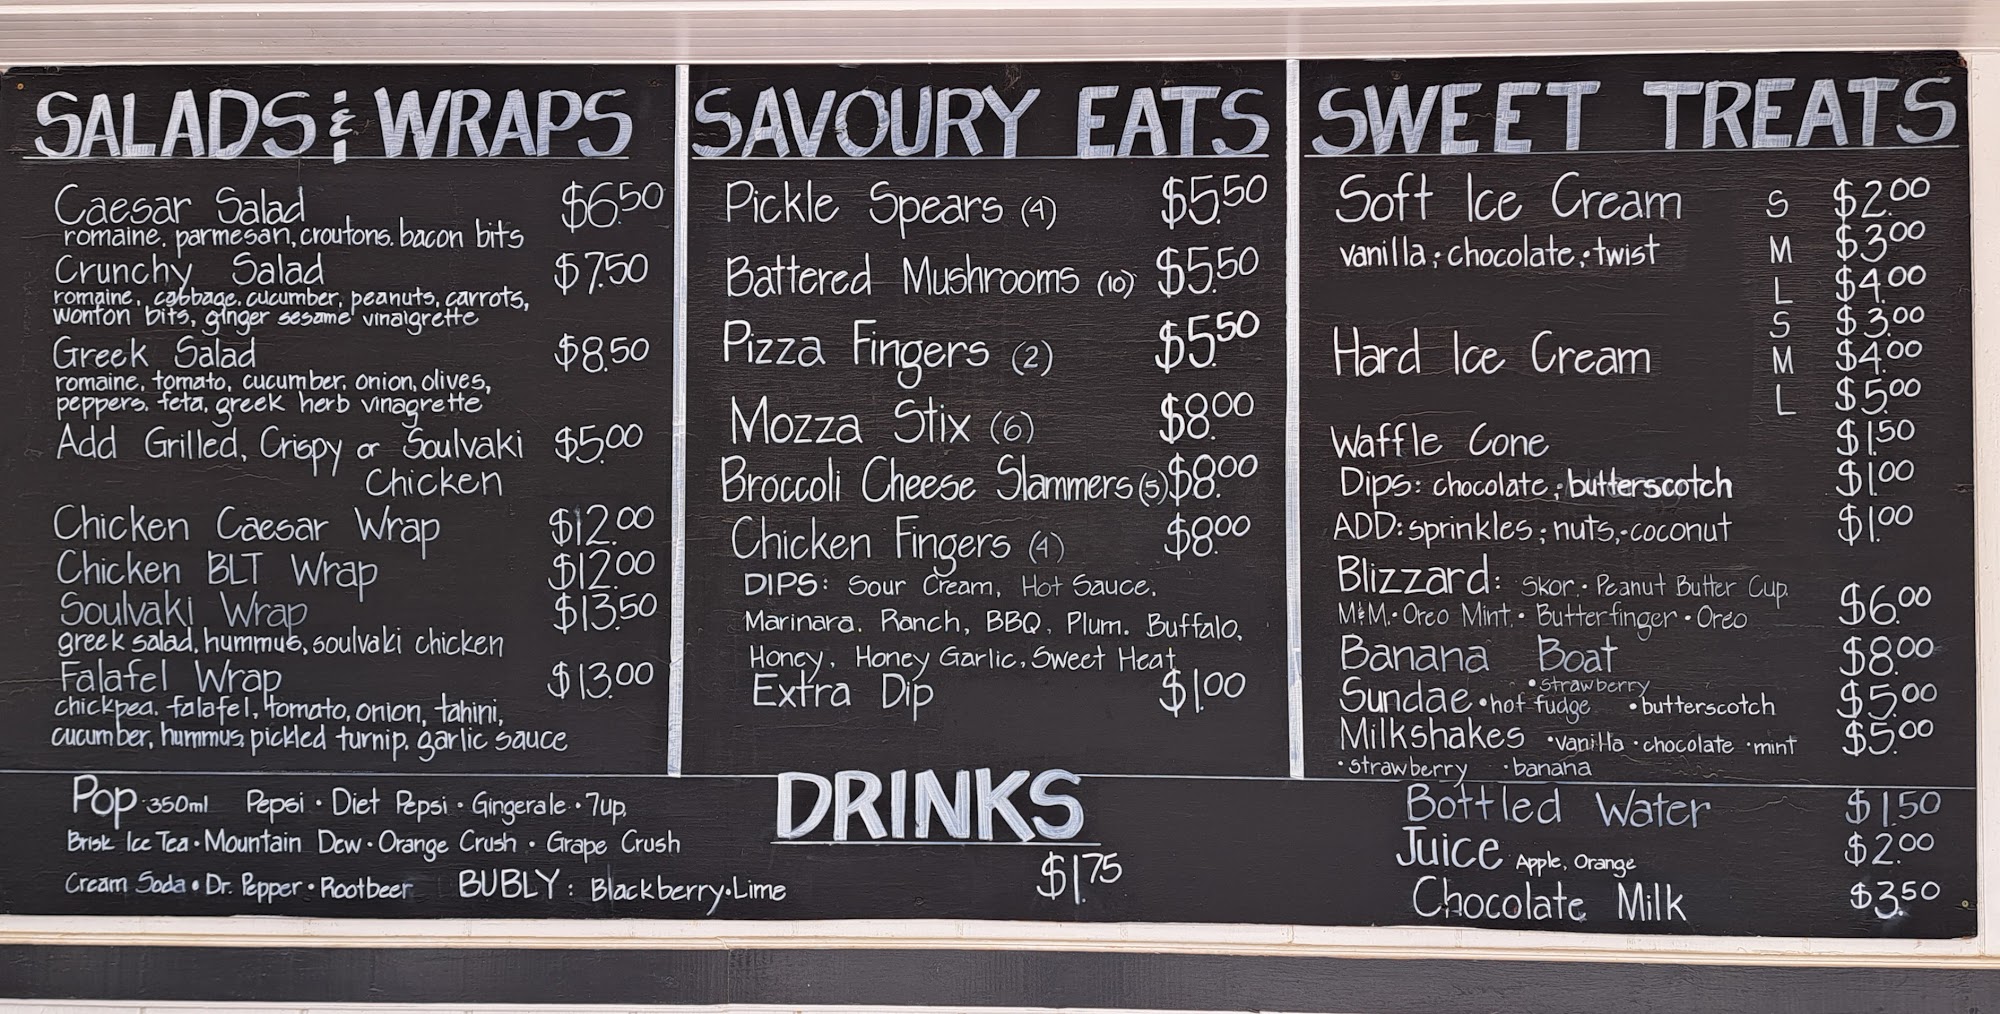 SALADS & WRAPS
Caesar Salad $6.50
romaine, parmesan, croutons, bacon bits
Crunchy Salad $7.50
romaine, cabbage, cucumber, peanuts, carrots,
wonton bits, ginger sesame vinaigrette
Greek Salad $8.50
romaine, tomato, cucumber, onion, olives,
peppers, feta, greek herb vinagrette
Add Grilled, Crispy or Soulvaki $5.00
Chicken
Chicken Caesar Wrap $12.00
Chicken BLT Wrap $12.00
Soulvaki Wrap $13.50
greek salad, hummus, soulvaki chicken
Falafel Wrap $13.00
chickpea, falafel, tomato, onion, tahini,
cucumber, hummus, pickled turnip, garlic sauce
SAVOURY EATS
Pickle Spears (4) $5.50
Battered Mushrooms (10) $5.50
Pizza Fingers (2) $5.50
Mozza Stix (6) $8.00
Broccoli Cheese Slammers (5) $8.00
Chicken Fingers (4) $8.00
DIPS: Sour Cream, Hot Sauce,
Marinara, Ranch, BBQ, Plum, Buffalo,
Honey, Honey Garlic, Sweet Heat
Extra Dip $1.00
SWEET TREATS
Soft Ice Cream S $2.00
vanilla • chocolate • twist M $3.00
L $4.00
S $3.00
Hard Ice Cream M $4.00
L $5.00
Waffle Cone $1.50
Dips: chocolate • butterscotch $1.00
ADD: sprinkles • nuts • coconut $1.00
Blizzard: Skor • Peanut Butter Cup
M&M • Oreo Mint • Butterfinger • Oreo $6.00
Banana Boat $8.00
• strawberry
Sundae • hot fudge • butterscotch $5.00
Milkshakes • vanilla • chocolate • mint $5.00
• strawberry • banana
DRINKS
Pop 350ml Pepsi • Diet Pepsi • Gingerale • 7up,
Brisk Ice Tea • Mountain Dew • Orange Crush • Grape Crush
Cream Soda • Dr. Pepper • Rootbeer BUBLY: Blackberry • Lime
$1.75
Bottled Water $1.50
Juice Apple, Orange $2.00
Chocolate Milk $3.50